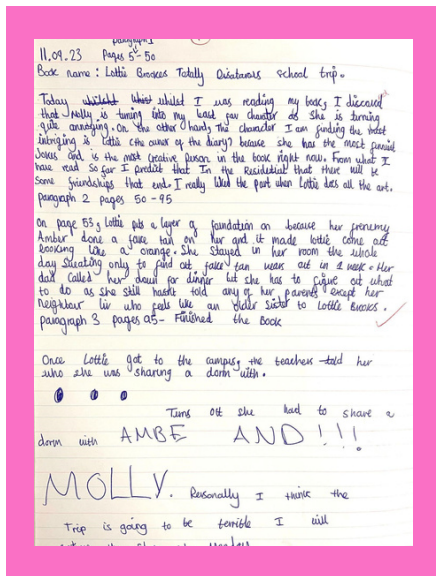 paragraph 1
11.09.23 Pages 5 - 50
Book name : Lottie Brookes Totally Disatarous school trip.
Today whilst I was reading my book, I discoved
that Molly is turning into my least fav charater as she is turning
quite annoying. On the other hand, The character I am finding the most
intriging is Lottie (the owner of the diary) because she has the most funniest
Jokes and is the most creative person in the book right now. From what I
have read so far I predict that In the Residential that there will be
some friendships that end. I really liked the part when Lottie does all the art.
Paragraph 2 pages 50 - 95
On page 53, Lottie puts a layer of foundation on because her frenemy
Amber done a fake tan on her and it made lottie come out
looking like a orange. She stayed in her room the whole
day Sweating only to find out, fake tan wears out in 1 week. Her
dad called her down for dinner but she has to figure out what
to do as she still hasnt told any of her parents except her
neighbour Liv who feels like an older Sister to Lottie Brooks.
paragraph 3 pages 95 - Finished the Book
Once Lottie got to the campus, the teachers told her
who she was sharing a dorm with.
Turns out she had to share a
dorm with AMBE AND!!!
MOLLY. Personally I think the
Trip is going to be terrible I will